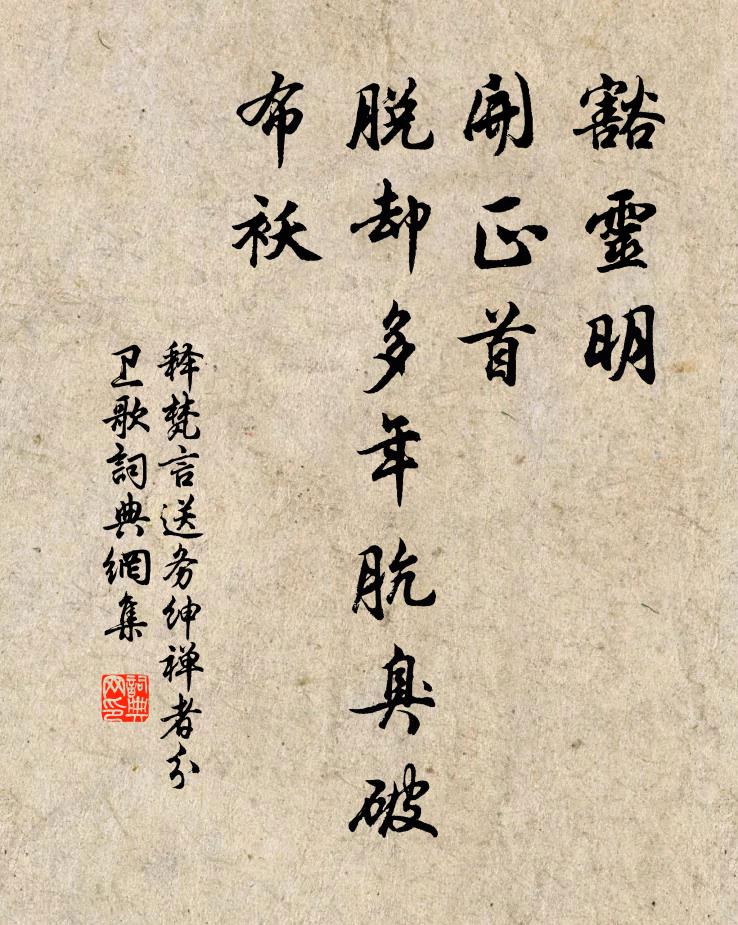 豁靈明
開正首
脱却多年肮臭破
布袄
释梵言送务绅禅者分
卫歌詞典網集
詞典
网印